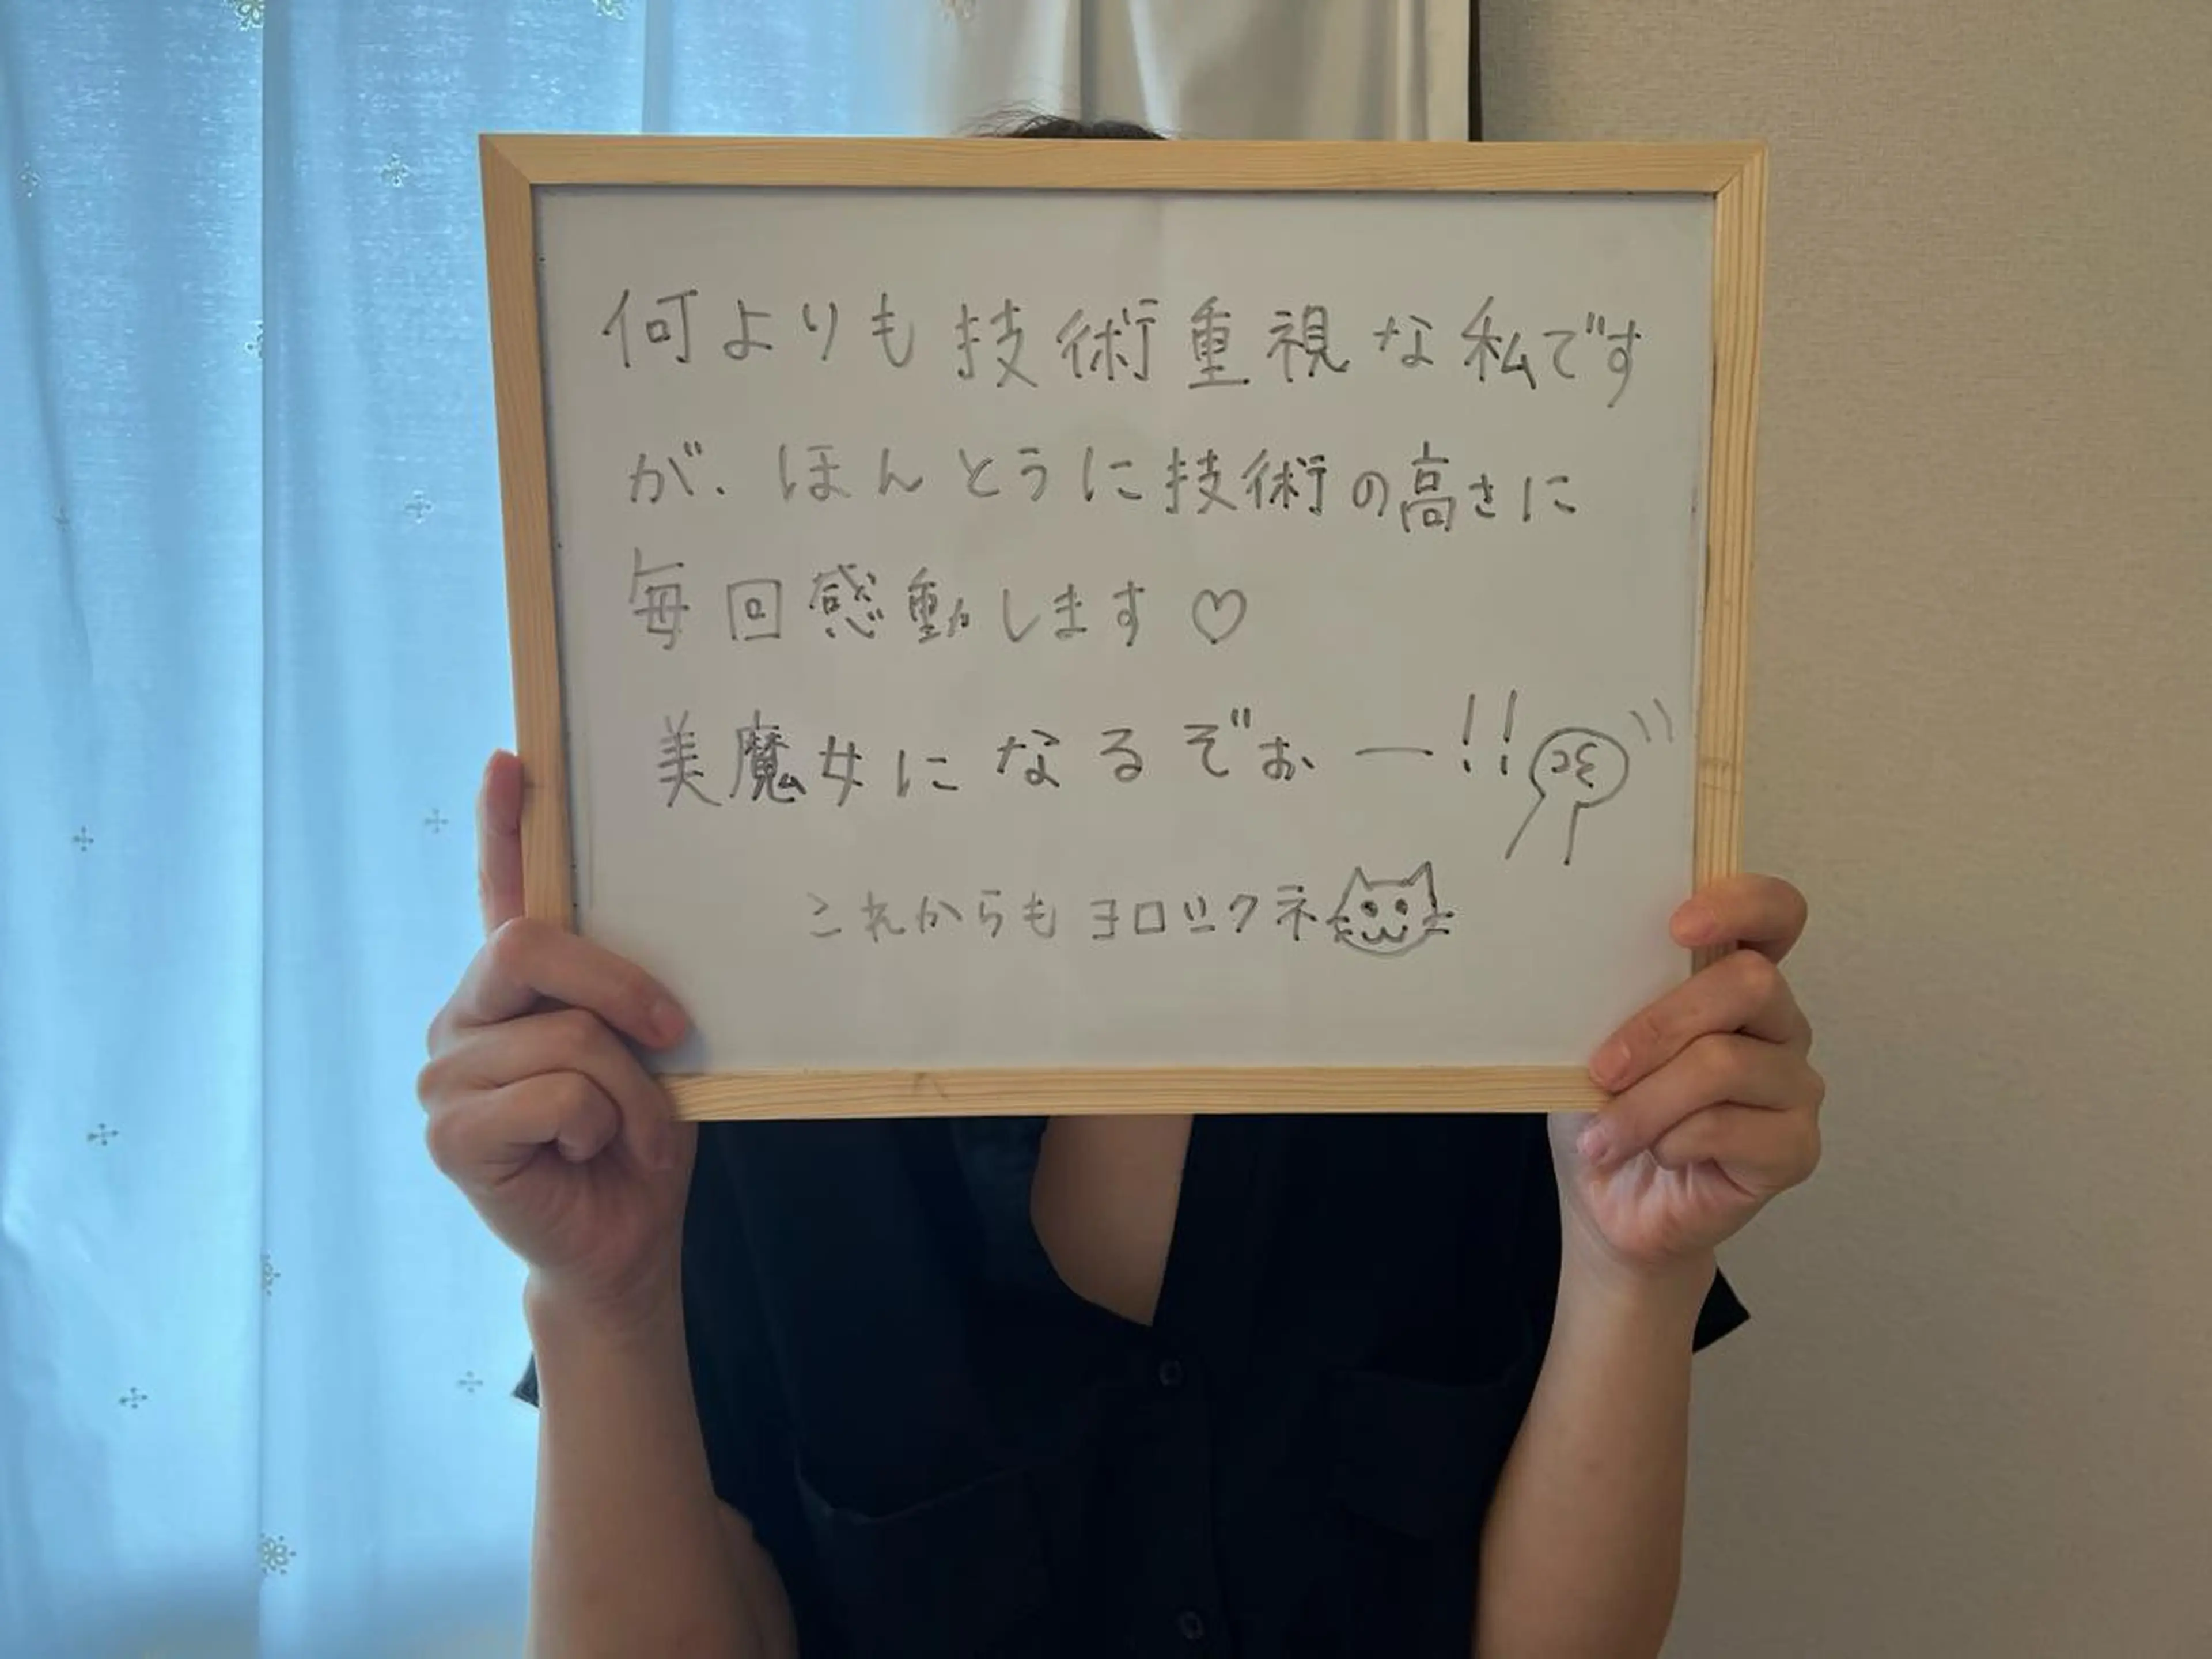 何よりも技術重視な私です
が、ほんとうに技術の高さに
毎回感動します♡
美魔女になるぞぉー!!
これからもヨロシクネ